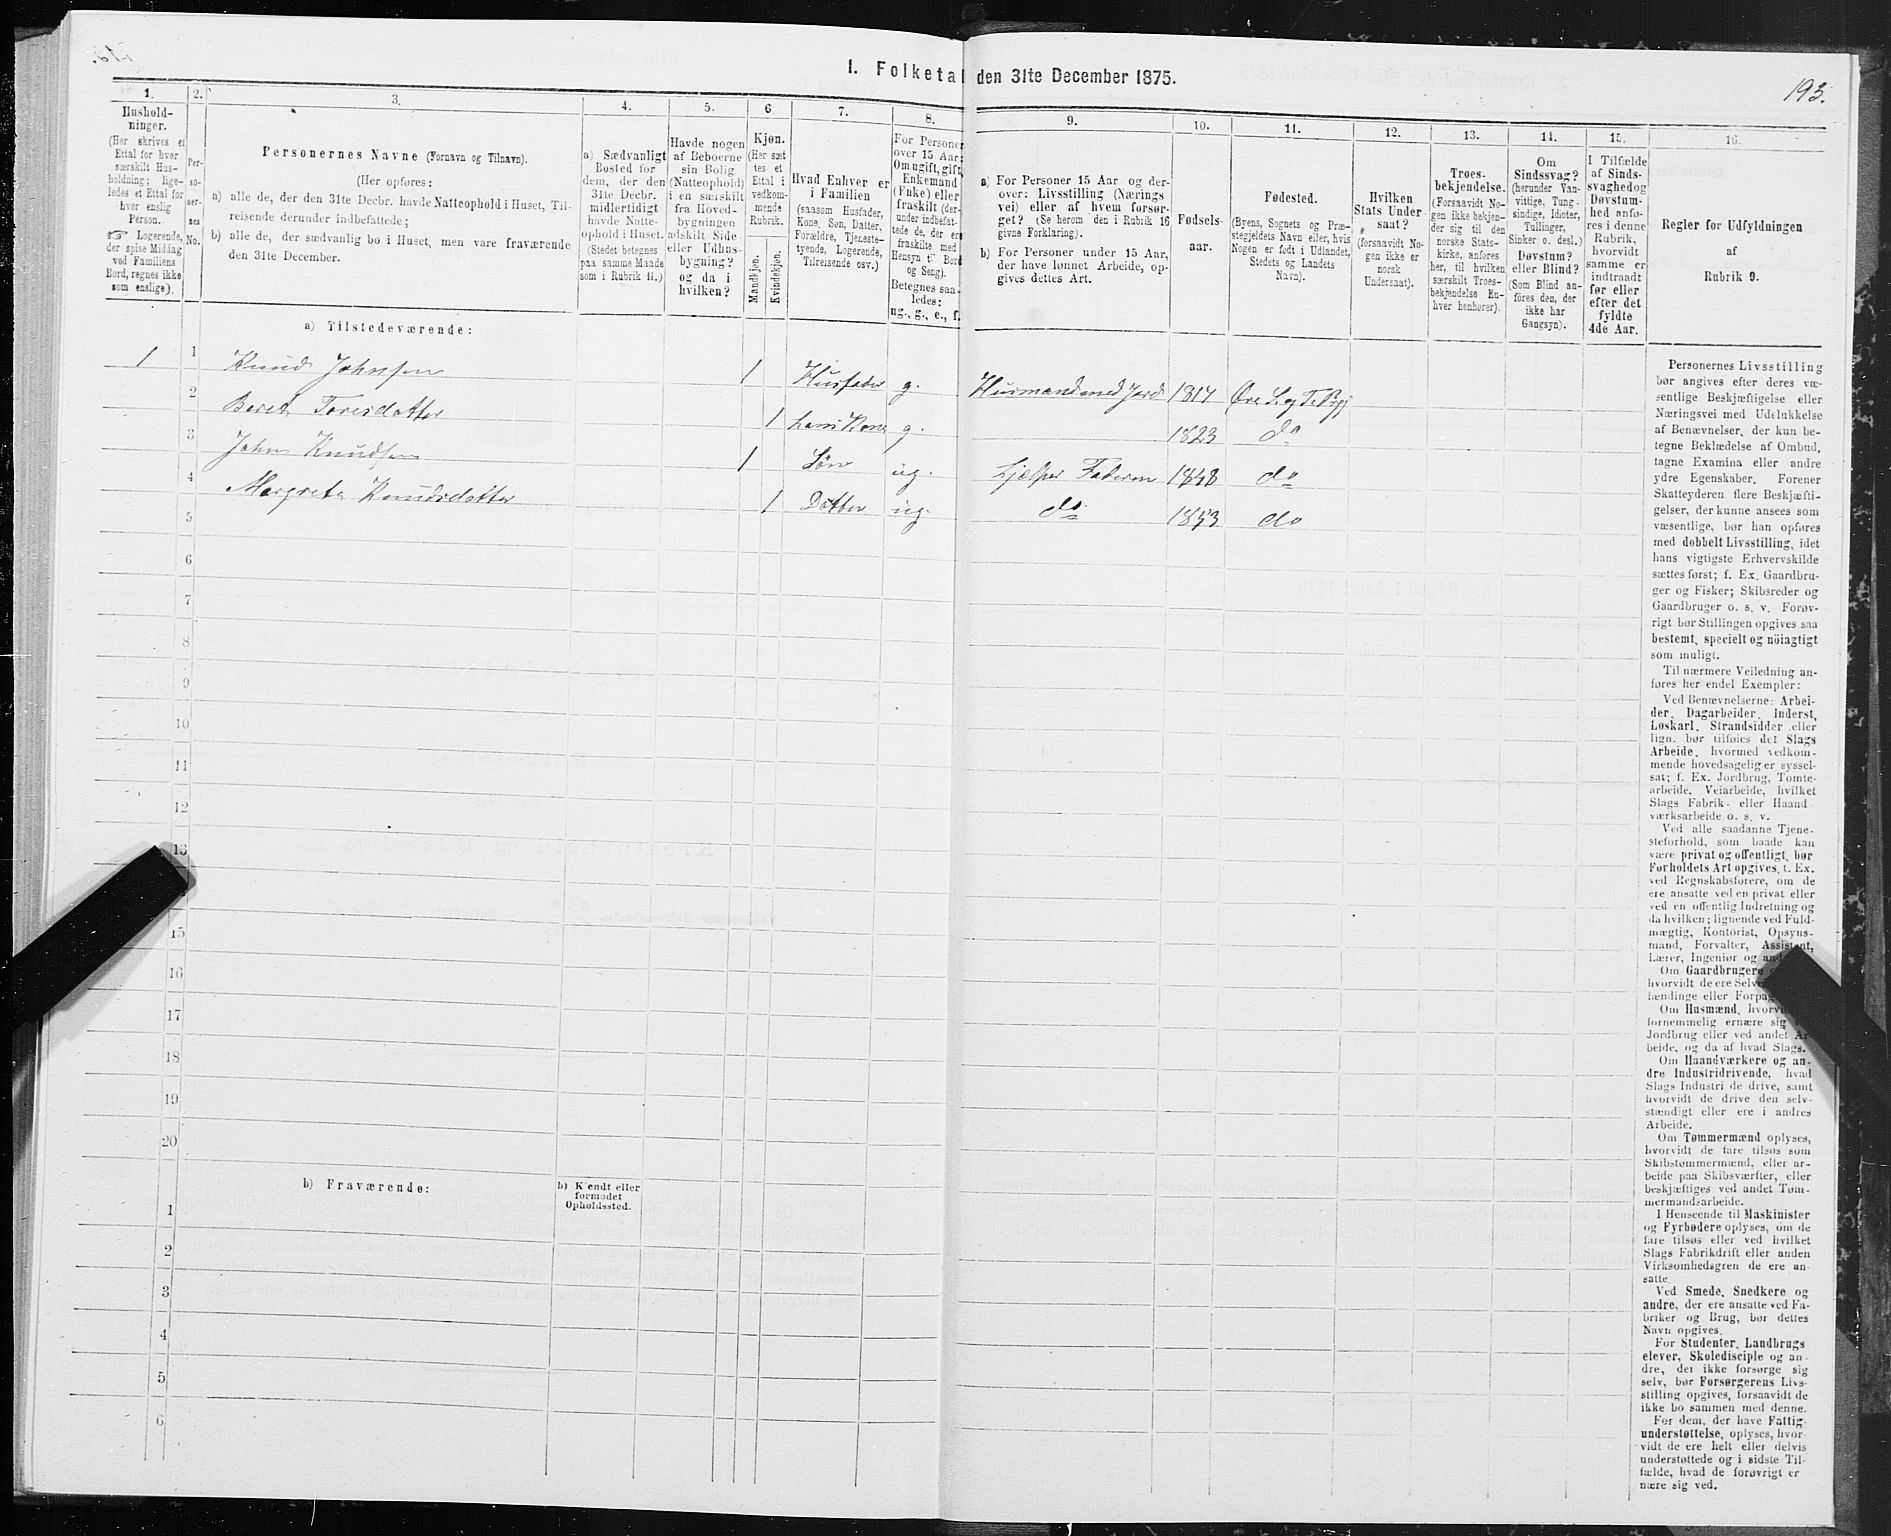 1. Folketal den 31te December 1875.
193.
1.
Hushold-
ninger.
(Her skrives et
Ettal for hver
særskilt Hus-
holdning; lige-
ledes et Ettal for
hver enslig
Person.
☞ Logerende,
der spise Middag
ved Familiens
Bord, regnes ikke
som enslige).
2.
Per-
so-
ner-
nes
No.
3.
Personernes Navne (Fornavn og Tilnavn).
(Her opføres:
a) alle de, der den 31te Decbr. havde Natteophold i Huset, Til-
reisende derunder indbefattede;
b) alle de, der sædvanlig bo i Huset, men vare fraværende
den 31te December.
4.
a) Sædvanligt
Bosted for
dem, der den
31te Decbr.
midlertidigt
havde Natte-
ophold i Huset.
(Stedet betegnes
paa samme Maade
som i Rubrik 11.)
5.
Havde nogen
af Beboerne
sin Bolig
(Natteophold)
i en særskilt
fra Hoved-
bygningen
adskilt Side-
eller Udhus-
bygning?
og da i
hvilken?
6.
Kjøn.
(Her sæt
tes et
Ettal i
vedkom-
mende
Rubrik.
Mandkjøn.
Kvindekjøn.
7.
Hvad Enhver er
i Familien
(saasom Husfader,
Kone, Søn, Datter,
Forældre, Tjeneste-
tyende, Logerende,
Tilreisende osv.)
8.
For Personer
over 15 Aar:
Om ugift, gift,
Enkemand
(Enke) eller
fraskilt (der-
under indbefat-
tede de, der ere
fraskilte med
Hensyn til Bord
og Seng).
Betegnes saa-
ledes:
ug., g., e., f.
9.
a) For Personer 15 Aar og der-
over: Livsstilling (Nærings-
vei) eller af hvem forsør-
get? (Se herom den i Rubrik 16
givne Forklaring).
b) For Personer under 15 Aar,
der have lønnet Arbeide, op-
gives dettes Art.
10.
Fødsels-
aar.
11.
Fødested.
(Byens, Sognets og Præ-
stegjeldets Navn eller, hvis
Nogen er født i Udlandet,
Stedets og Landets
Navn).
12.
Hvilken
Stats Under-
saat?
(forsaavidt No-
gen ikke er
norsk
Undersaat).
13.
Troes-
bekjendelse.
(Forsaavidt No-
gen ikke bekjen-
der sig til den
norske Stats-
kirke, anføres
her, til hvilken
særskilt Troes-
bekjendelse En-
hver henhører).
14.
Om
Sindssvag?
(herunder Van-
vittige, Tung-
sindige, Idioter,
Tullinger,
Sinker o. desl.)
Døvstum?
eller Blind?
(Som Blind an-
føres den, der
ikke har
Gangsyn).
15.
I Tilfælde
af Sinds-
svaghed og
Døvstum-
hed anfø-
res i denne
Rubrik,
hvorvidt
samme er
indtraadt
før eller
efter det
fyldte
4de Aar.
16.
Regler for Udfyldningen
af
Rubrik 9.
a) Tilstedeværende:
1 1 Knud Johnsen 1 Husfader g. Husmand med Jord 1817
2 Beret Toresdatter 1 hans Kone g. 1823 do
3 John Knudsen 1 Søn ug. hjælper Faderen 1848 do
4 Margrete Knudsdatter 1 Datter ug. do 1853 do
5
6
7
8
9
10
11
12
13
15
16
17
18
19
20
b) Fraværende:
b) Kjendt eller
formodet
Opholdssted.
1
2
3
4
5
6
Personernes Livsstilling
bør angives efter deres væ-
sentlige Beskjæftigelse eller
Næringsvei med Udelukkelse
af Benævnelser, der kun be-
tegne Beklædelse af Ombud,
tagne Examina eller andre
ydre Egenskaber. Forener
Skatteyderen flere Beskjæfti-
gelser, der kunne ansees som
væsentlige, bør han opføres
med dobbelt Livsstilling, idet
hans vigtigste Erhvervskilde
sættes først; f. Ex. Gaardbru-
ger og Fisker; Skibsreder og
Gaardbruger o. s. v. Forøv-
rigt bør Stillingen opgives saa
bestemt, specielt og nöiagtigt
som muligt.
Til nærmere Veiledning an-
føres her endel Exempler:
Ved Benævnelserne: Arbei-
der, Dagarbeider, Inderst,
Løskarl, Strandsidder eller
lign. bør tilføies det Slags
Arbeide, hvormed vedkom-
mende hovedsagelig er syssel-
sat; f. Ex. Jordbrug, Tomte-
arbeide, Veiarbeide, hvilket
Slags Fabrik- eller Haand-
værksarbeide o. s. v.
Ved alle saadanne Tjene-
steforhold, som baade kan
være privat og offentligt, bør
Forholdets Art opgives, f. Ex.
ved Regnskabsførere, om de
ere ansatte ved en privat eller
ved en offentlig Indretning og
da hvilken; lignende ved Fuld-
mægtig, Kontorist, Opsyns-
mand, Forvalter, Assistent,
Lærer, Ingeniør og
Om Gaardbrugere
hvorvidt de ere
lændinge eller
Om Husmænd,
fornemmelig ernære sig
Jordbrug eller ved andet Ar-
beide, og da af hvad Slags.
Om Haandværkere og an-
dre Industridrivende, hvad
Slags Industri de drive, samt
hvorvidt de drive den selv-
stændigt eller ere i andres
Arbeide.
Om Tømmermænd oplyses,
hvorvidt de fare tilsøs som
Skibstømmermænd, eller ar-
beide paa Skibsværfter, eller
beskjæftiges ved andet Tøm-
mermandsarbeide.
I Henseende til Maskinister
og Fyrbødere oplyses, om de
fare tilsøs eller ved hvilket
Slags Fabrikdrift eller anden
Virksomhedsgren de ere an-
satte.
Ved Smede, Snedkere og
andre, der ere ansatte ved Fa-
briker og Brug, bør dettes
Navn opgives.
For Studenter, Landbrugs-
elever, Skoledisciple og an-
dre, der ikke forsørge sig
selv, bør Forsørgerens Livs-
stilling opgives, forsaavidt de
ikke bo sammen med denne.
For dem, der have Fattig-
understøttelse, oplyses, hvor-
vidt de ere helt eller delvis
understøttede og i sidste Til-
fælde, hvad de forøvrigt er-
nære sig ved.